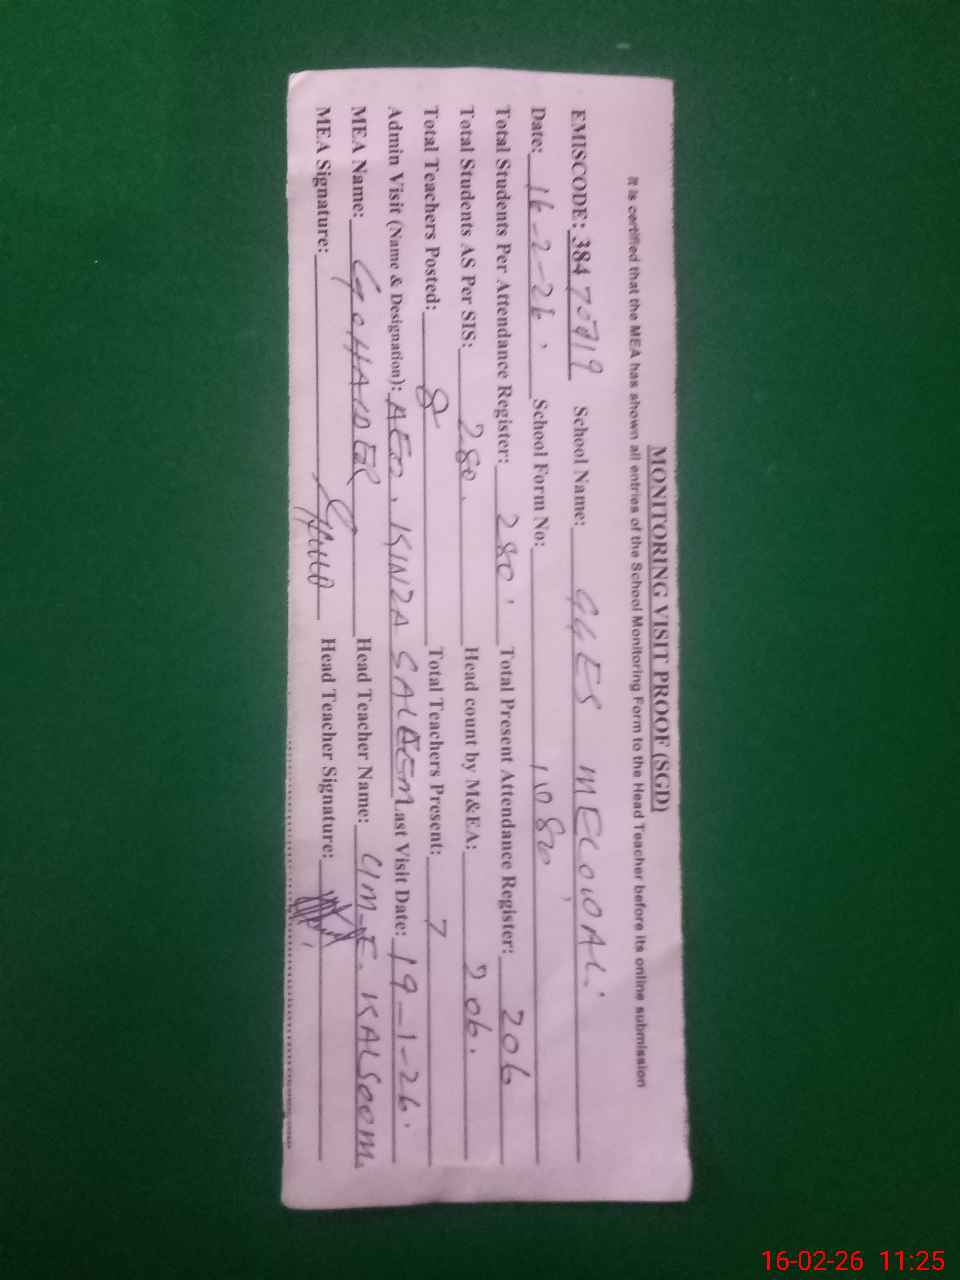 MONITORING VISIT PROOF (SGD)
It is certified that the MEA has shown all entries of the School Monitoring Form to the Head Teacher before its online submission
EMISCODE: 384 School Name: GGES MELOWAL.
Date: 16-2-26, School Form No: 1080,
Total Students Per Attendance Register: 280, Total Present Attendance Register: 206
Total Students AS Per SIS: 280. Head count by M&EA: 206.
Total Teachers Posted: 8 Total Teachers Present: 7
Admin Visit (Name & Designation): AEO, KINZA SALEEM Last Visit Date: 19-1-26.
MEA Name: Head Teacher Name: UM-E. KALSOOM.
MEA Signature: Head Teacher Signature:
16-02-26 11:25